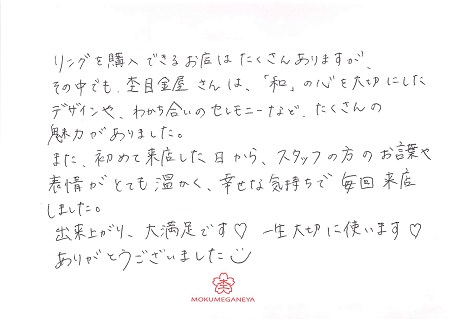 リングを購入できるお店はたくさんありますが、
その中でも、杢目金屋さんは、「和」の心を大切にした
デザインや、わかち合いのセレモニーなど、たくさんの
魅力がありました。
また、初めて来店した日から、スタッフの方のお言葉や
表情がとても温かく、幸せな気持ちで毎回来店
しました。
出来上がり、大満足です♡ 一生大切に使います♡
ありがとうございました
MOKUMEGANEYA